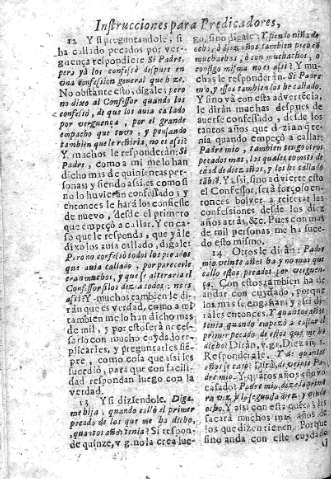 Instrucciones para Predicadores,
12 Y si preguntandole, si
ha callado pecados por ver-
guença respondiere Si Padre,
pero yà los confessè despues en
una confession general que hize.
No obstante esto, digale; pero
no dixo al Confessor quando los
confessò, de que los auia callado
por verguença, por el grande
empacho que tuvo, y pensando
tambien que le reñiria, no es assi?
Y muchos le responderàn: Si
Padre, como a mi me lo han
dicho mas de quinientas per-
sonas y siendo assi, es como si
no lo huvieran confessado; y
entonces le harà los confiesse
de nuevo, desde el primero
que empeçò a callar. Y en ca-
so que le responda, que yà le
dixo los auia callado, digale:
Pero no confessò todos los pecados
que auia callado, por parecerle
eran muchos, y que se alteraria el
Confessor si los dezia todos: no es
assi? Y muchos tambien le di-
ran que es verdad, como a mi
tambien me lo han dicho mas
de mil, y por esto serà neces-
sario con mucho cuydado re-
plicarles, y preguntarles siē-
pre, como cosa que assi les
sucediò, para que con facili-
dad respondan luego con la
verdad.
13 Y si diziendole. Diga
me hija, quando callò el primer
pecado de los que me ha dicho,
quantos años tenia? Si respon-
de quinze, v.g. no la crea lue-
go, sino digale; Y siendo niña de
ocho, ò diez años tambien
muchachos, o
consigo misma no es assi? Y mu-
chos le responderàn. Si Padre
mio, y essos tambien los he callado.
Y sino và con esta advertēcia,
le diràn muchas despues de
averse confessado, desde los
tantos años que dezian q̄ te-
nia quando empeçò a callar:
Padre mio, tambien tengo otros
pecados mas, los quales cometi de
edad de diez años, y los he calla-
do. Y assi, sino advierte esto
el Confessor, serà forçoso en-
tonces bolver a reiterar las
confessiones desde los diez
años atràs, &c. Pues con mas
de mil personas me ha suce-
do esto mismo.
14 Otros le diràn: Padre
mio veinte años ha y no mas que
callo estos pecados por verguen-
ça. Con estos tambien ha de
andar con cuydado, porque
los mas se engañan y assi di-
gales entonces. Y quantos años
tenia quando empezò a callar el
primer pecado de essos que me ha
dicho? Diràn, v.g. Diez, &c.
Responderale. Y de quantos
años se casò? Dirà, de veinte, Padre
mio. Y quantos años que es
casado? Padre mio,
Y assi con esta
sacarà muchos mas años de
los que dizen tienen. Porque
sino anda con este cuydado